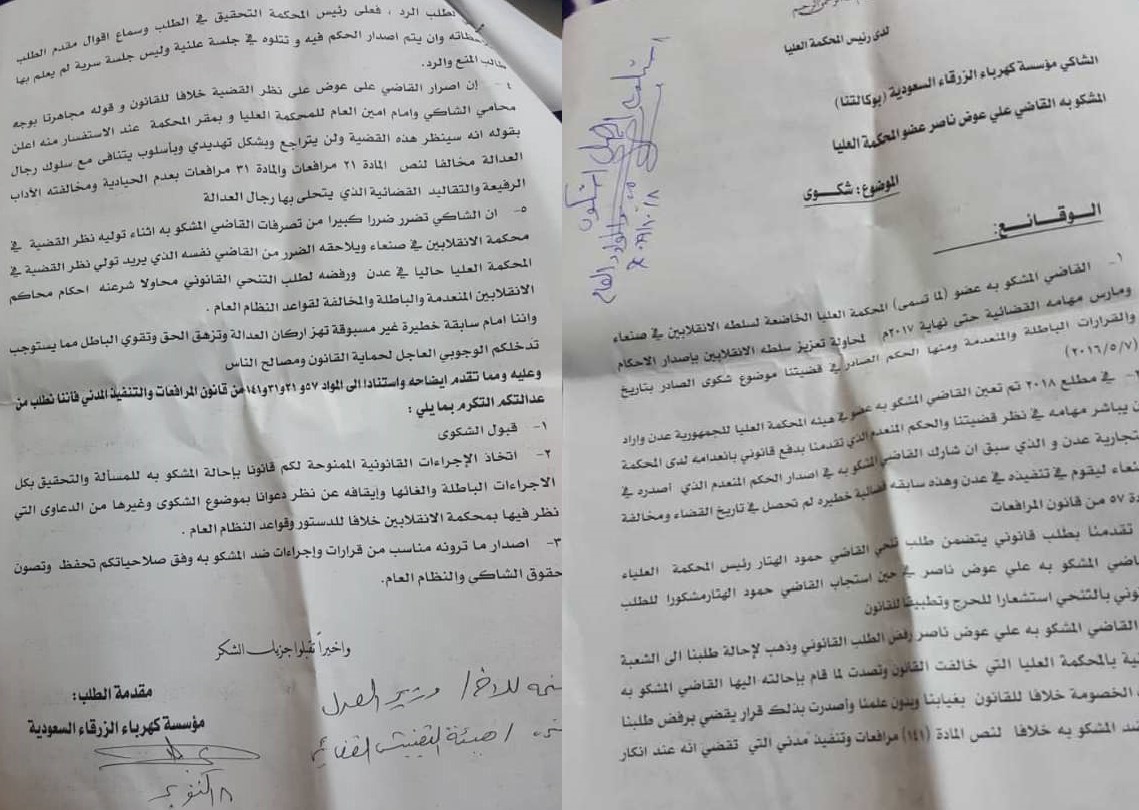 لدى رئيس المحكمة العليا
الشاكي مؤسسة كهرباء الزرقاء السعودية (بوكالتنا)
المشكو به القاضي علي عوض ناصر عضو المحكمة العليا
الموضوع : شكـــوى
الـوقـــانـــع :
١- القاضي المشكو به عضو (لما تسمى) المحكمة العليا الخاضعة لسلطه الانقلابين في صنعاء
ومارس مهامه القضائية حتى نهاية ٢٠١٧م لمحاولة تعزيز سلطه الانقلابين بإصدار الاحكام
والقرارات الباطلة والمنعدمة ومنها الحكم الصادر في قضيتنا موضوع شكوى الصادر بتاريخ
(٢٠١٦/٥/٧)
في مطلع ٢٠١٨ تم تعين القاضي المشكو به عضو في هيئه المحكمة العليا للجمهورية عدن واراد
ن يباشر مهامه في نظر قضيتنا والحكم المنعدم الذي تقدمنا بدفع قانوني بانعدامه لدى المحكمة
تجارية عدن و الذي سبق ان شارك القاضي المشكو به في اصدار الحكم المنعدم الذي أصدره في
نعاء ليقوم في تنفيذه في عدن وهذه سابقه قضائية خطيره لم تحصل في تاريخ القضاء ومخالفة
دة ٥٧ من قانون المرافعات
تقدمنا بطلب قانوني يتضمن طلب تنحي القاضي حمود الهتار رئيس المحكمة العلياء
قاضي المشكو به علي عوض ناصر في حين استجاب القاضي حمود الهتارمشكورا للطلب
وني بالتنحي استشعارا للحرج وتطبيقا للقانون
القاضي المشكو به علي عوض ناصر رفض الطلب القانوني وذهب لإحالة طلبنا الى الشعبة
نية بالمحكمة العليا التي خالفت القانون وتصدت لما قام بإحالته اليها القاضي المشكو به
الخصومة خلافا للقانون بغيابنا وبدون علمنا وأصدرت بذلك قرار يقضي برفض طلبنا
ضد المشكو به خلافا لنص المادة (١٤١) مرافعات وتنفيذ مدني التي تقضي انه عند انكار
بطلب الرد ، فعلى رئيس المحكمة التحقيق في الطلب وسماع اقوال مقدم الطلب
وان يتم اصدار الحكم فيه و تتلوه في جلسة علنية وليس جلسة سرية لم يعلم بها
طالب المنع والرد.
٤- إن اصرار القاضي على عوض على نظر القضية خلافا للقانون و قوله مجاهرتا بوجه
محامي الشاكي وامام امين العام للمحكمة العليا و بمقر المحكمة عند الاستفسار منه اعلن
بقوله انه سينظر هذه القضية ولن يتراجع وبشكل تهديدي وبأسلوب يتنافى مع سلوك رجال
العدالة مخالفا لنص المادة ٢١ مرافعات والمادة ٣١ مرافعات بعدم الحيادية ومخالفته الآداب
الرفيعة والتقاليد القضائية الذي يتحلى بها رجال العدالة
٥- ان الشاكي تضرر ضررا كبيرا من تصرفات القاضي المشكو به اثناء توليه نظر القضية في
محكمة الانقلابين في صنعاء ويلاحقه الضرر من القاضي نفسه الذي يريد تولي نظر القضية في
المحكمة العليا حاليا في عدن ورفضه لطلب التنحي القانوني محاولا شرعنه احكام محاكم
الانقلابين المنعدمة والباطلة والمخالفة لقواعد النظام العام .
واننا امام سابقة خطيرة غير مسبوقة تهز اركان العدالة وتزهق الحق وتقوي الباطل مما يستوجب
تدخلكم الوجوبي العاجل لحماية القانون ومصالح الناس
وعليه ومما تقدم ايضاحه واستنادا الى المواد ٥٧ و ٢١و٣١و١٤١ من قانون المرافعات والتنفيذ المدني فأننا نطلب من
عدالتكم التكرم بما يلي :
١- قبول الشكوى
٢- اتخاذ الإجراءات القانونية الممنوحة لكم قانونا بإحالة المشكو به للمسألة والتحقيق بكل
الاجراءات الباطلة والغائها وإيقافه عن نظر دعوانا بموضوع الشكوى وغيرها من الدعاوى التي
نظر فيها بمحكمة الانقلابين خلافا للدستور وقواعد النظام العام .
٣- اصدار ما ترونه مناسب من قرارات وإجراءات ضد المشكو به وفق صلاحياتكم تحفظ وتصون
حقوق الشاكي والنظام العام.
واخيراً تقبلوا جزيل الشكر
مقدمة الطلب :
مؤسسة كهرباء الزرقاء السعودية
١٨ اكتوبر
للاخ/ وزير العدل
هيئة التفتيش القضائي